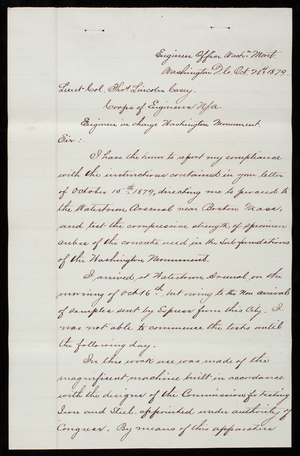 Engineer Office Wash'n Mont.
Washington D.C. Oct. 21st 1879.
Lieut. Col. Thos. Lincoln Casey,
Corps of Engineers U.S.A.
Engineer in charge Washington Monument.
Sir:
I have the honor to report my compliance
with the instructions contained in your letter
of October 10th 1879, directing me to proceed to
the Watertown Arsenal near Boston Mass,
and test the compressive strength of specimen
cubes of the concrete used in the Sub-foundations
of the Washington Monument.
I arrived at Watertown Arsenal on the
morning of Oct 16th, but owing to the non arrival
of samples sent by Express from this City, I
was not able to commence the tests until
the following day.
In this work use was made of the
magnificent machine built in accordance
with the designs of the Commission for testing
Iron and Steel, appointed under authority of
Congress. By means of this apparatus